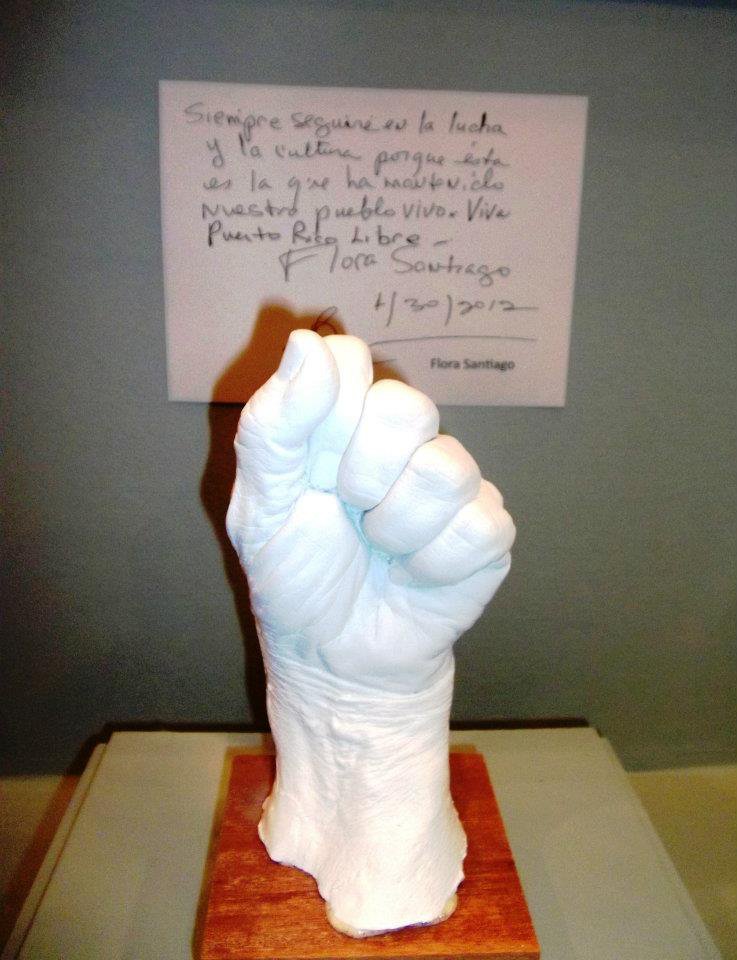 Siempre seguiré en la lucha
y la cultura porque ésta
es la que ha mantenido
nuestro pueblo vivo. Viva
Puerto Rico Libre -
Flora Santiago
1/30/2012
Flora Santiago